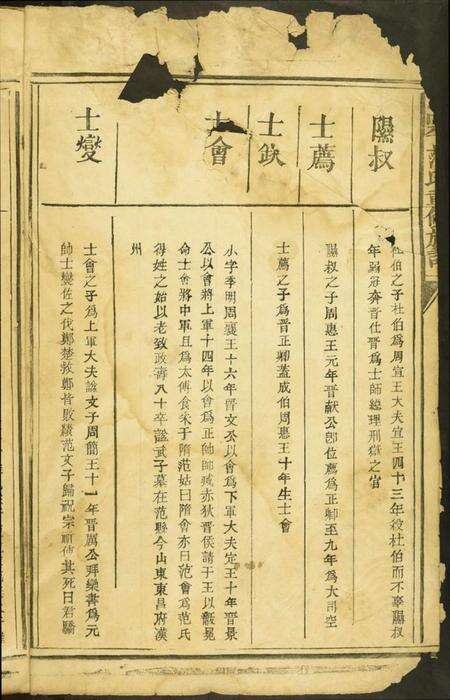 隰叔
杜伯之子杜伯為周宣王大夫宣王四十三年殺杜伯而不辜隰叔
年弱冠奔晉仕晉為士師總理刑獄之官
士蒍
隰叔之子周惠王元年晉獻公卽位蒍為正卿至九年為大司空
士缺
士蒍之子為晉正卿蓋成伯周惠王十年生士會
士會
小字季明周襄王十六年晉文公以會為下軍大夫定王十年晉景
公以會將上軍十四年以會為正帥師滅赤狄晉侯請于王以黻冕
命士會將中軍且為太傅食采于隋范姑曰隋會亦曰范會為范氏
得姓之始以老致政壽八十卒諡武子墓在范縣今山東東昌府濮
州
士燮
士會之子為上軍大夫諡文子周簡王十一年晉厲公拜欒書為元
帥士燮佐之伐鄭楚救鄭皆敗績范文子歸祝宗祈使其死曰君驕